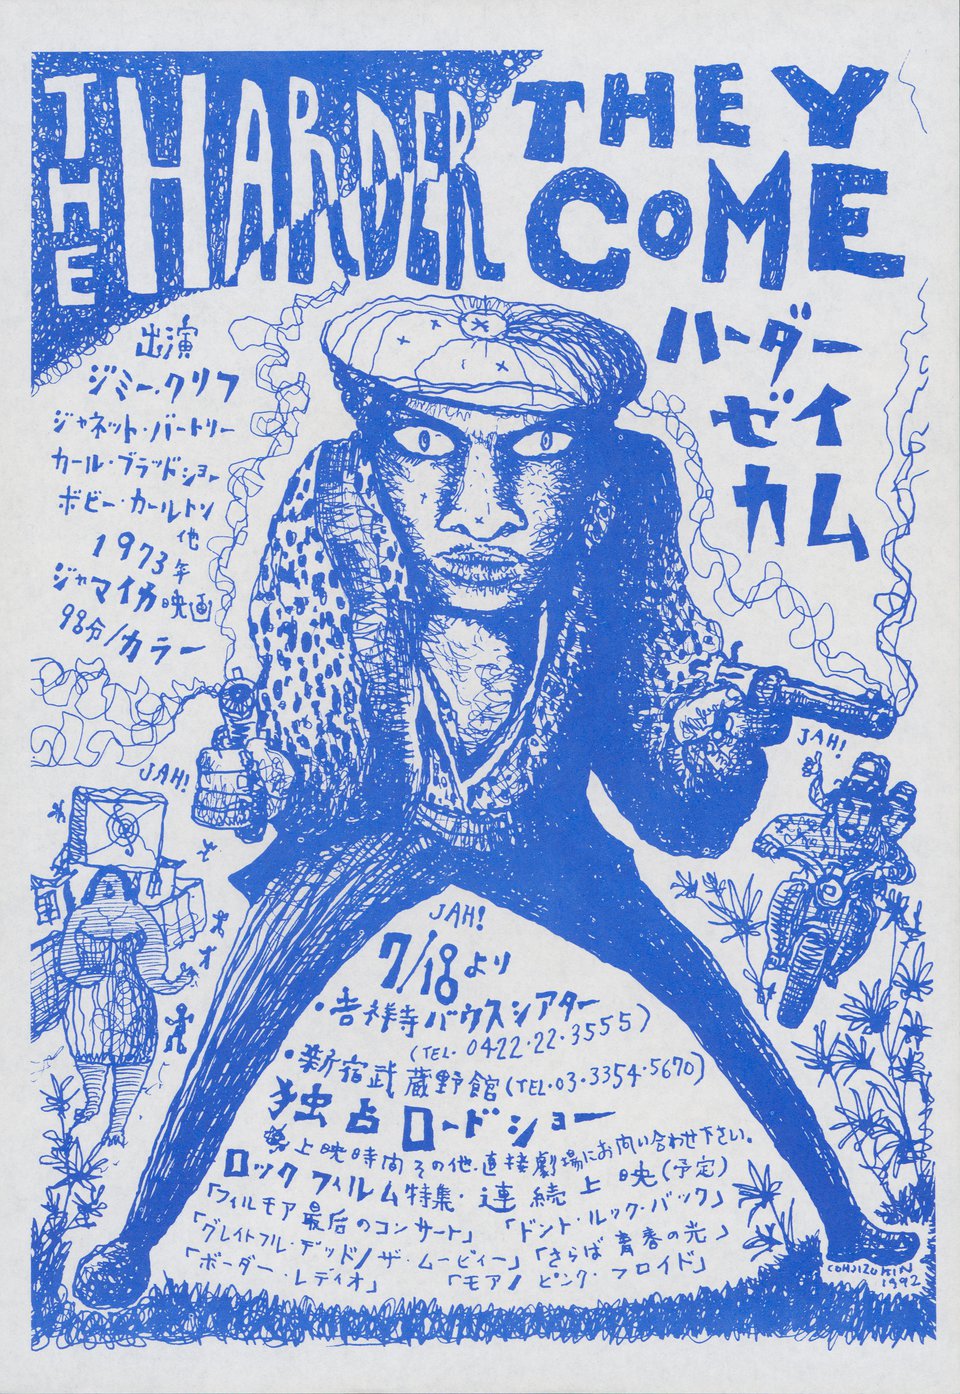 THE HARDER THEY
COME
ハーダー
ゼイ
カム
出演
ジミー・クリフ
ジャネット・バートリー
カール・ブラッドショー
ボビー・カールトン
他
1973年
ジャマイカ映画
98分/カラー
JAH!
JAH!
JAH!
7/18より
・吉祥寺バウスシアター
(TEL・0422・22・3555)
・新宿武蔵野館(TEL・03・3354・5670)
独占ロードショー
※上映時間その他・直接劇場にお問い合わせ下さい。
ロックフィルム特集・連続上映(予定)
「フィルモア最后のコンサート」「ドント・ルック・バック」
「グレイトフル・デッド/ザ・ムービィー」「さらば青春の光」
「ボーダー・レディオ」「モア/ピンク・フロイド」
1992